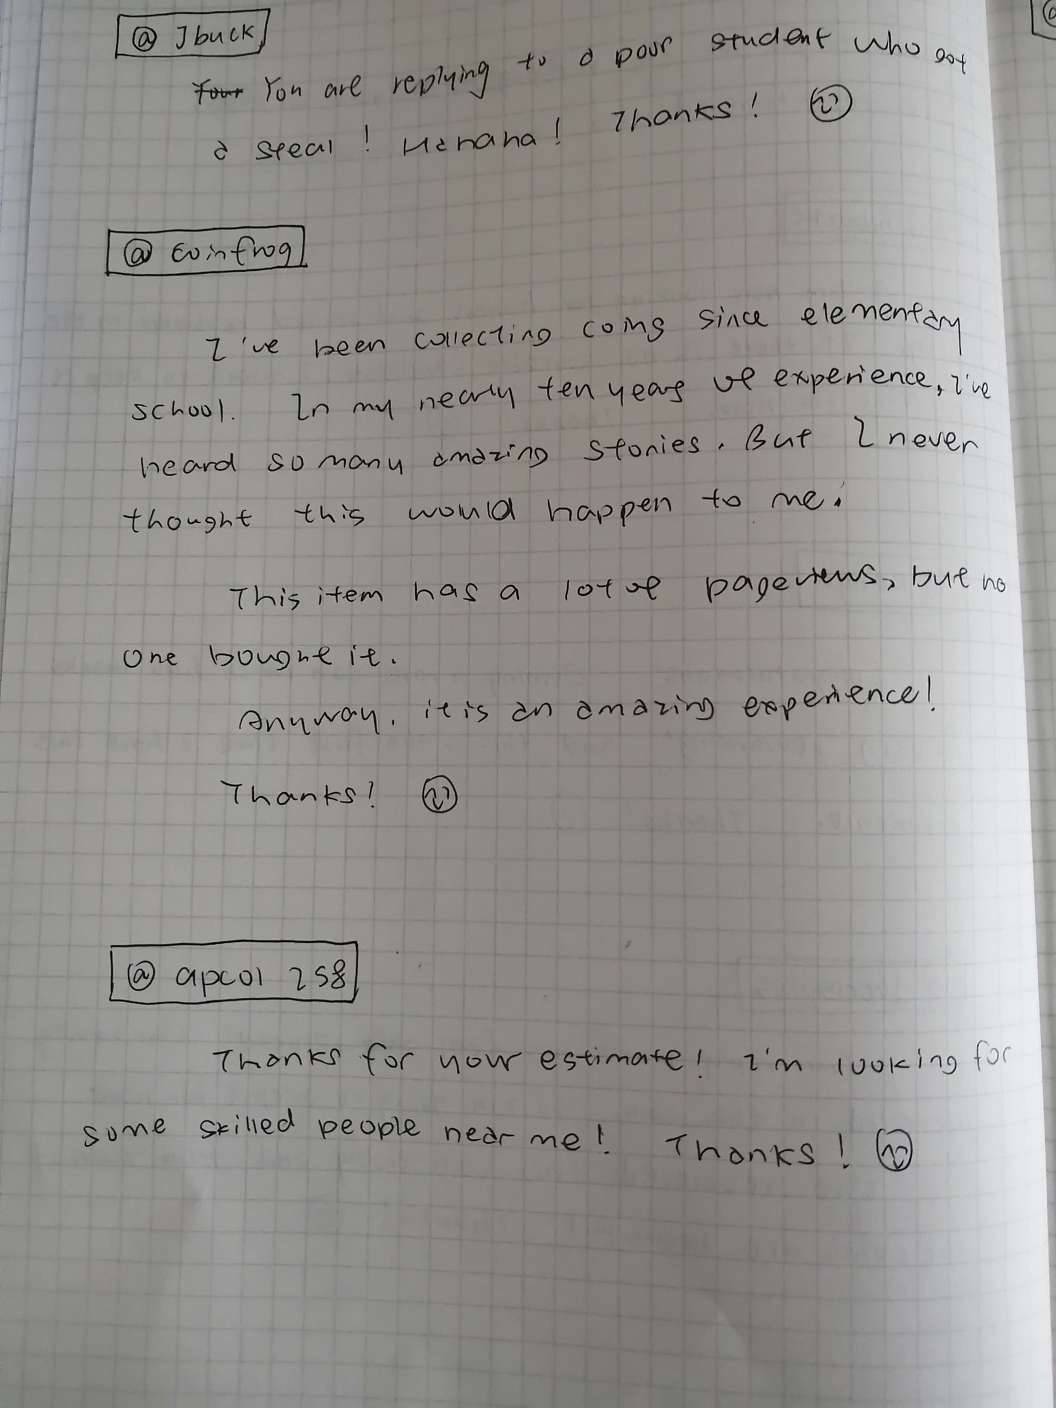 @ Jbuck
Your You are replying to a poor student who got
a steal! Hahaha! Thanks!
@ Coinfrog
I've been collecting coing since elementary
school. In my nearly ten years of experience, I've
heard so many amazing stories. But I never
thought this would happen to me.
This item has a lot of pageviews, but no
one bought it.
Anyway, it is an amazing experience!
Thanks!
@ apcol 258
Thanks for your estimate! I'm looking for
some skilled people near me! Thanks!